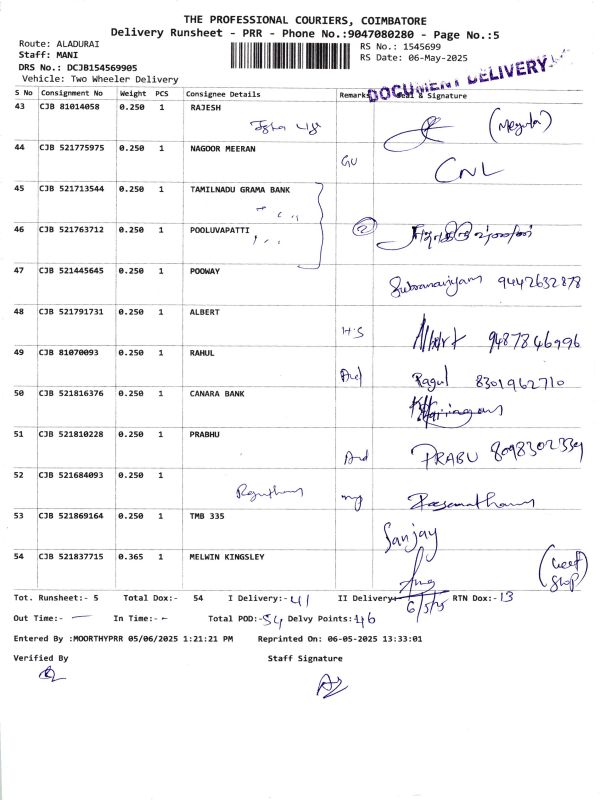 THE PROFESSIONAL COURIERS, COIMBATORE
Delivery Runsheet - PRR - Phone No.:9047080280 - Page No.:5
Route: ALADURAI
Staff: MANI
DRS No.: DCJB154569905
Vehicle: Two Wheeler Delivery
RS No.: 1545699
RS Date: 06-May-2025
DOCUMENT DELIVERY
S No Consignment No Weight PCS Consignee Details Remarks Seal & Signature
43 CJB 81014058 0.250 1 RAJESH
44 CJB 521775975 0.250 1 NAGOOR MEERAN GU CNL
45 CJB 521713544 0.250 1 TAMILNADU GRAMA BANK
46 CJB 521763712 0.250 1 POOLUVAPATTI 2
47 CJB 521445645 0.250 1 POOWAY 9442632878
48 CJB 521791731 0.250 1 ALBERT H.S Albert 9487846996
49 CJB 81070093 0.250 1 RAHUL Ragul 8301962710
50 CJB 521816376 0.250 1 CANARA BANK
51 CJB 521810228 0.250 1 PRABHU PRABU 8098302339
52 CJB 521684093 0.250 1
53 CJB 521869164 0.250 1 TMB 335 Sanjay
54 CJB 521837715 0.365 1 MELWIN KINGSLEY
Tot. Runsheet:- 5 Total Dox:- 54 I Delivery:- 41 II Delivery:- 6/5/25 RTN Dox:- 13
Out Time:- In Time:- Total POD:- 54 Delvy Points: 46
Entered By :MOORTHYPRR 05/06/2025 1:21:21 PM Reprinted On: 06-05-2025 13:33:01
Verified By Staff Signature